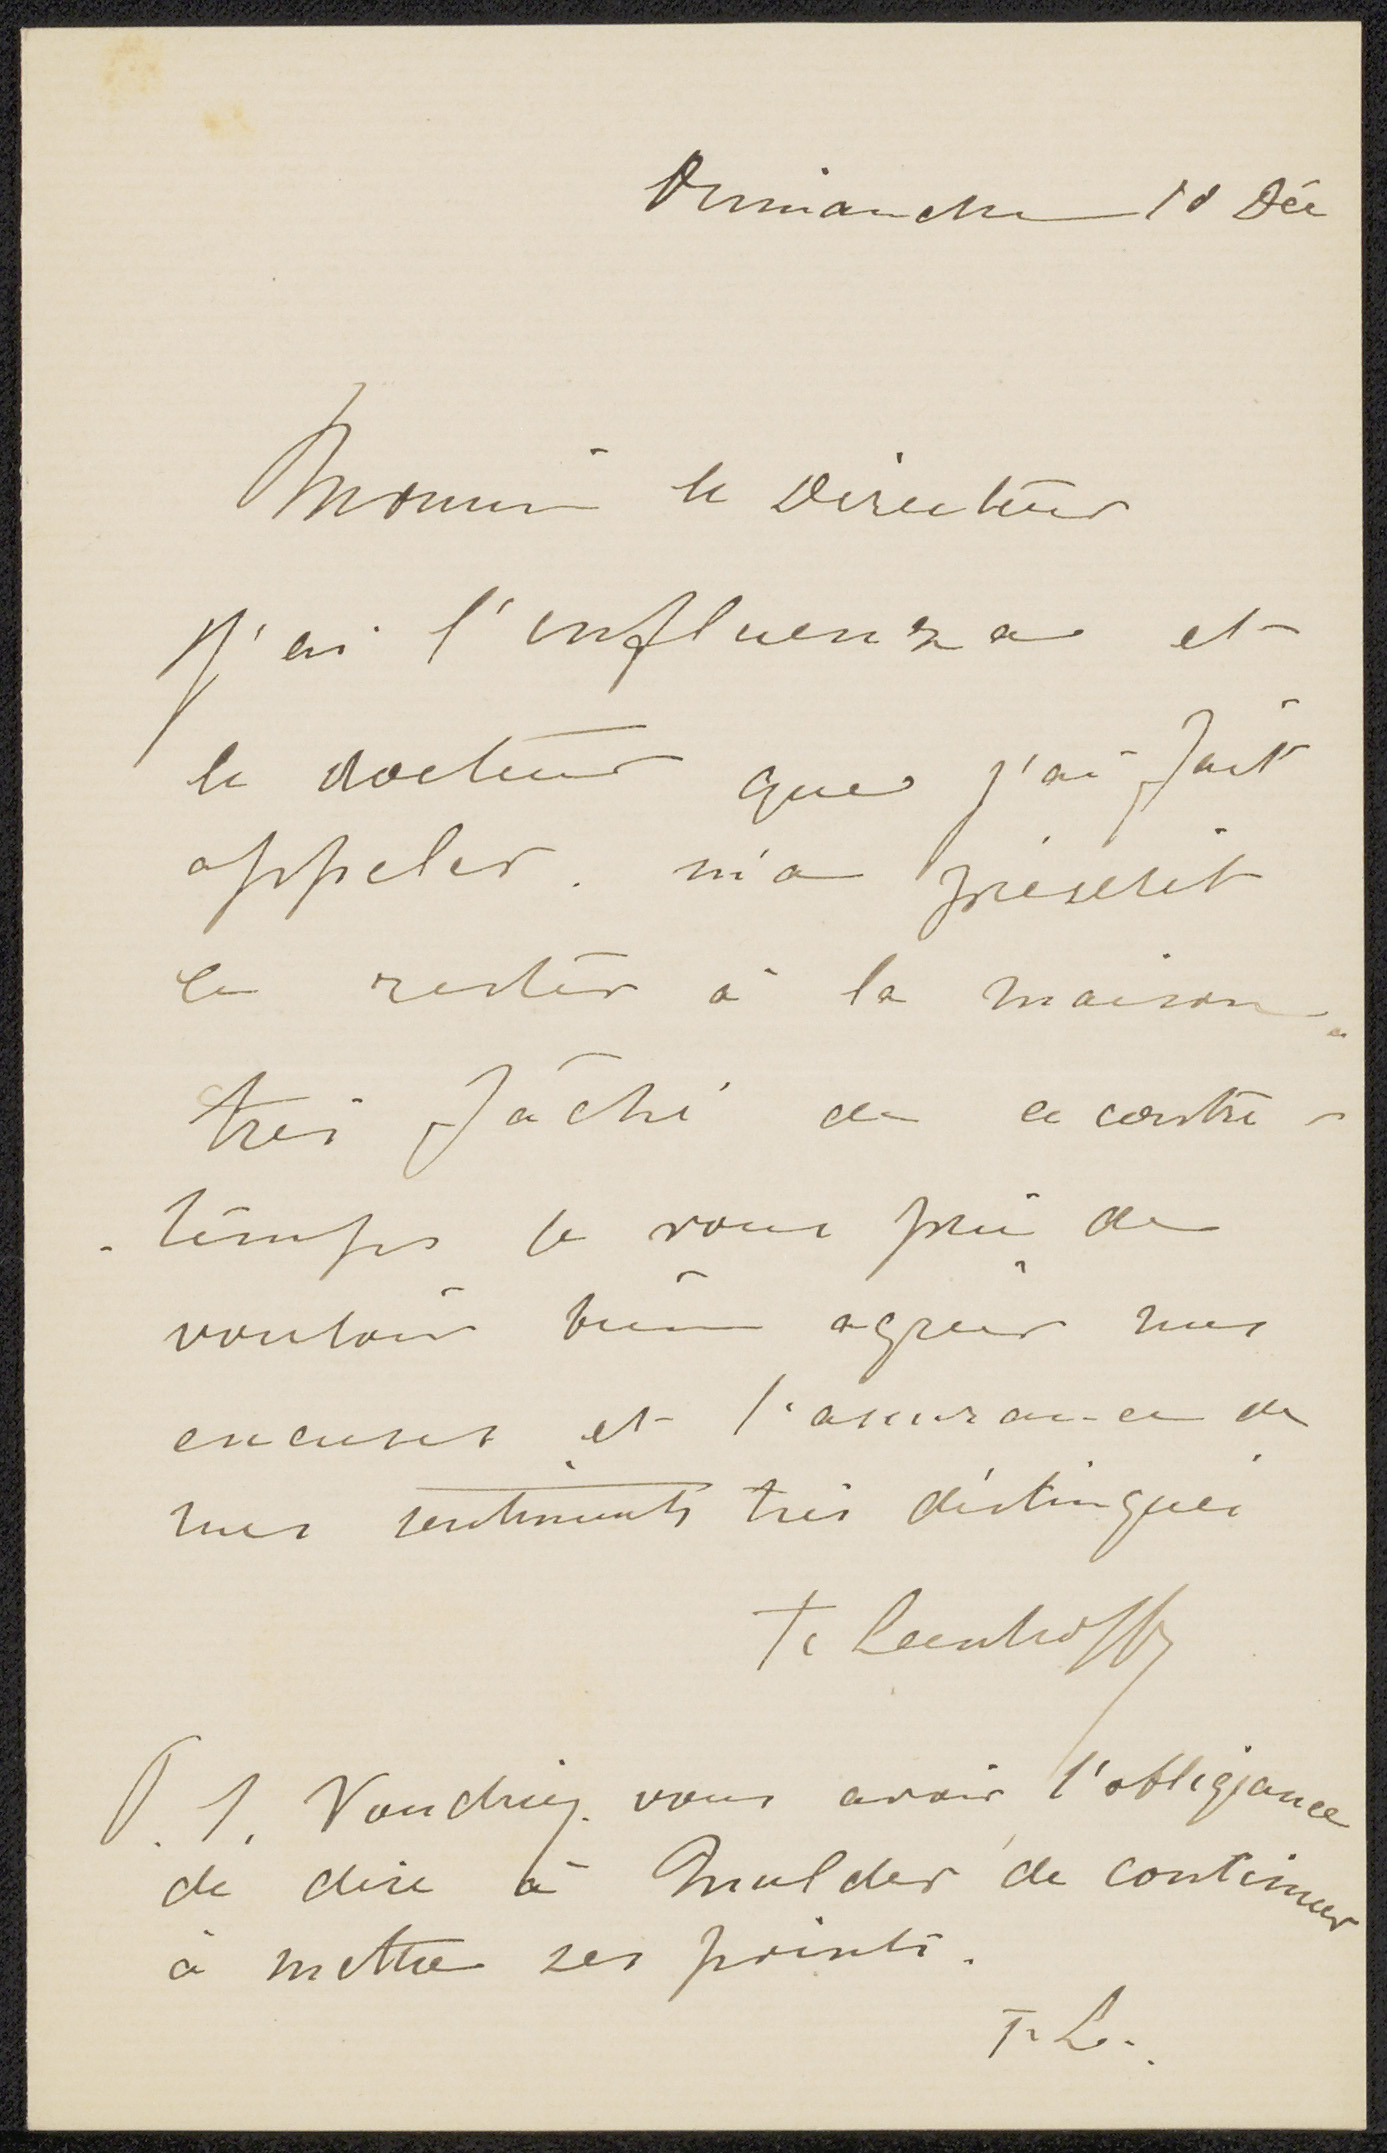 Dimanche 18 Déc
Monsieur le Directeur
J'ai l'influenza et
le docteur que j'ai fait
appeler. m'a prescrit
de rester à la maison.
très fâché de ce contre-
-temps je vous prie de
vouloir bien agréer mes
excuses et l'assurance de
mes sentiments très distingués
F. Leenhoff
P. S. Voudriez vous avoir l'obligeance
de dire à Mulder de continuer
à mettre ses points.
F. L.